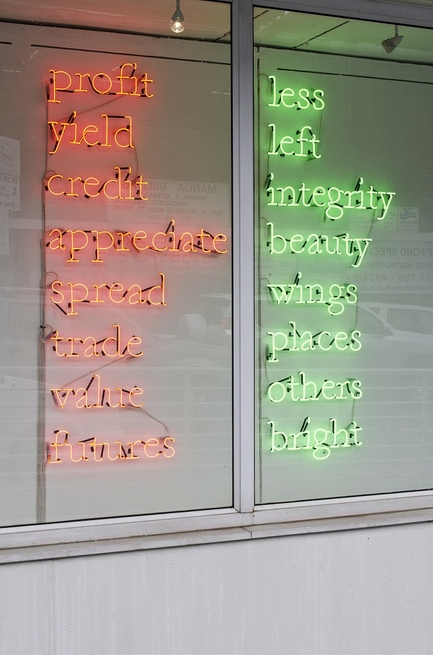 profit
yield
credit
appreciate
spread
trade
value
futures
less
left
integrity
beauty
wings
places
others
bright